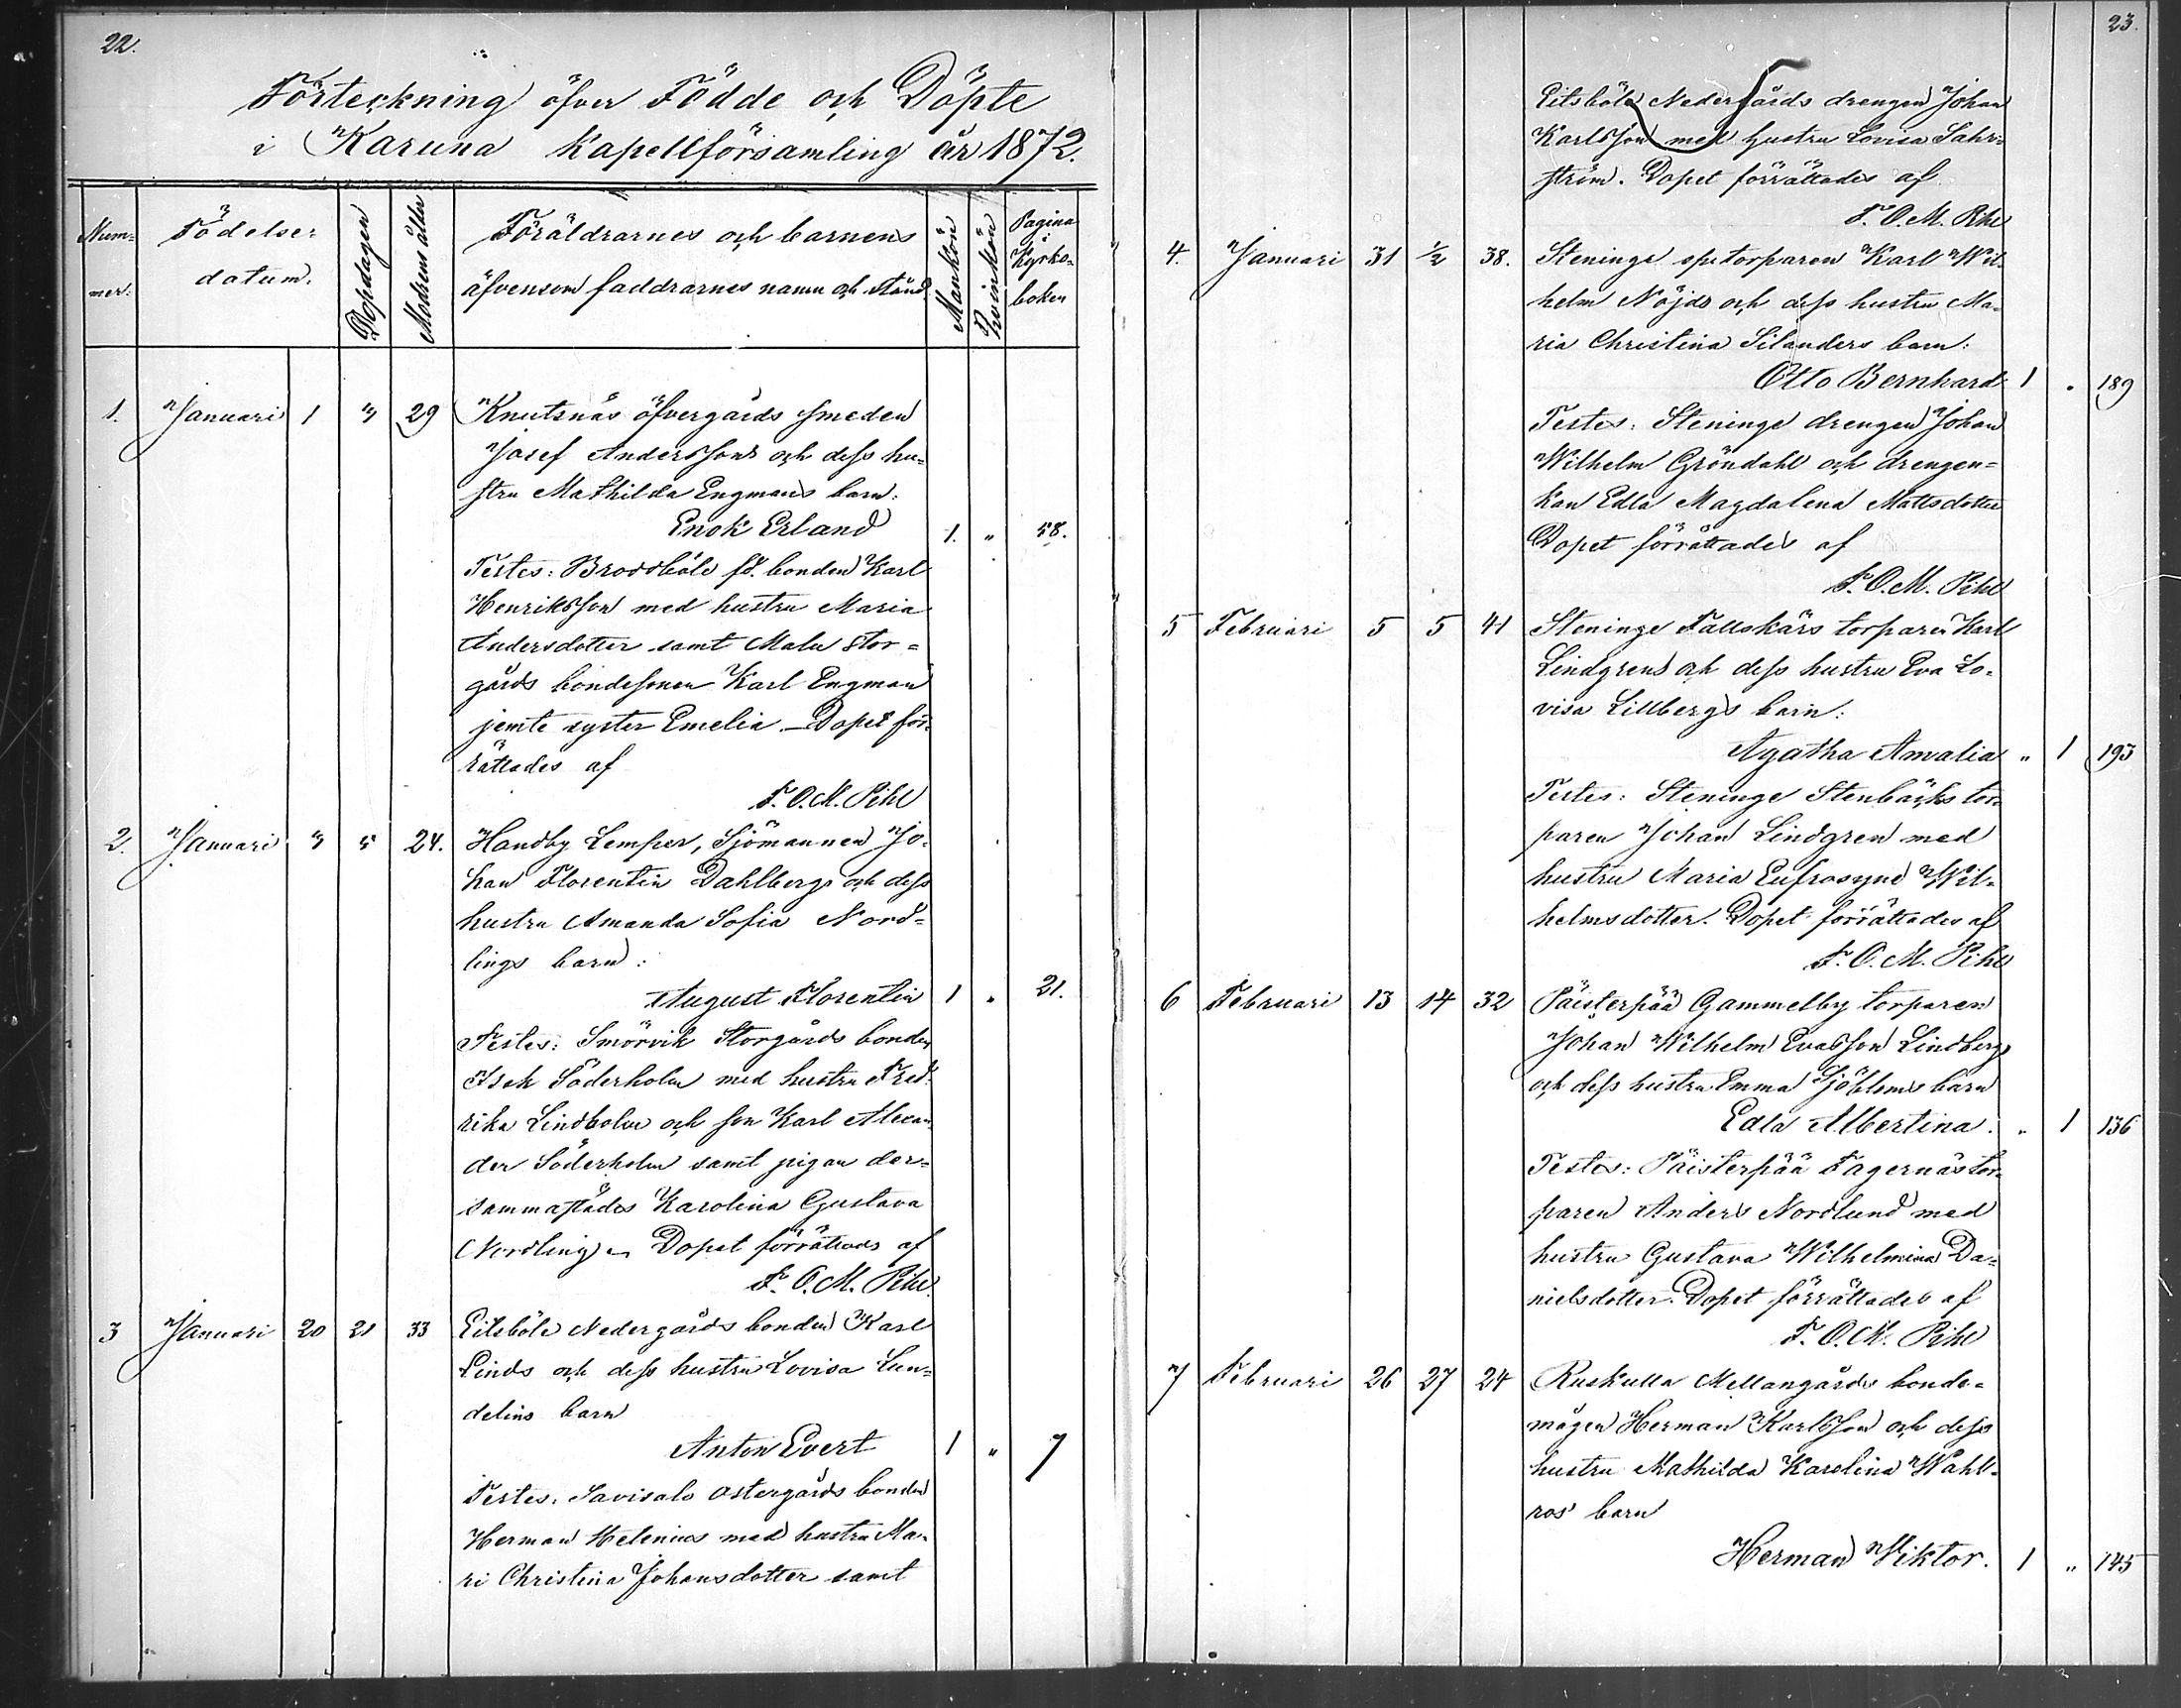 22.
Förteckning öfver Födde och Döpte
i Karuna Kapellförsamling år 1872.
Num-
mer.
Födelse-
datum.
Dopdagen
Modrens ålder
Föräldrarnes och barnens
äfvensom faddrarnes namn och stånd
Mankön
Qvinkön
Pagina
i
Kyrko-
boken
1. Januari 1 3 29 Knutsnäs öfvergårds smeden
Josef Anderssons och dess hu-
stru Mathilda Engmans barn:
Enok Erland 1. " 58.
Testes: Broddböle fd. bonden Karl
Henriksson med hustru Maria
Andersdotter samt Malu Stor-
gårds bondesonen Karl Engman
jemte syster Emelia. Dopet för-
rättades af
F. O. M. Pihl
2. Januari 3 5 24. Handby Lemper, Sjömannen Jo-
han Florentin Dahlbergs och dess
hustru Amanda Sofia Nord-
lings barn:
August Florentin 1 " 21.
Testes: Smörvik Storgårds bonden
Isak Söderholm med hustru Fred-
rika Lindholm och son Karl Alexan-
der Söderholm samt pigan der-
sammastädes Karolina Gustava
Nordling. Dopet förrättades af
F. O. M. Pihl.
3 Januari 20 21 33 Eitsböle Nedergårds bonden Karl
Linds och dess hustru Lovisa Lun-
delins barn
Anton Evert 1 " 7
Testes: Savisalo Östergårds bonden
Herman Helenius med hustru Ma-
ri Christina Johansdotter samt
23.
Eitsböle Nedergårds drengen Johan
Karlsson med hustru Lovisa Sahr-
ström. Dopet förrättades af
F. O. M. Pihl
4. Januari 31 1/2 38. Steninge torparen Karl Wil-
helm Nöjds och dess hustru Ma-
ria Christina Silanders barn:
Otto Bernhard 1 " 189
Testes: Steninge drengen Johan
Wilhelm Gröndahl och drengen-
kan Edla Magdalena Mattsdotter
Dopet förrättades af
F. O. M. Pihl
5 Februari 5 5 41 Steninge Fallskärs torparen Karl
Lindgrens och dess hustru Eva Lo-
visa Lillbergs barn:
Agatha Amalia " 1 193
Testes: Steninge Stenbäcks tor-
paren Johan Lindgren med
hustru Maria Eufrosyne Wil-
helmsdotter. Dopet förrättades af
F. O. M. Pihl
6 Februari 13 14 32 Päisterpää Gammelby torparen
Johan Wilhelm Evasson Lindbergs
och dess hustru Emma Sjöbloms barn
Edla Albertina. " 1 136
Testes: Päisterpää Fagernäs tor-
paren Anders Nordlund med
hustru Gustava Wilhelmina Da-
nielsdotter. Dopet förrättades af
F. O. M. Pihl
7 Februari 26 27 24 Ruskulla Mellangårds bonde-
mågen Herman Karlsson och dess
hustru Mathilda Karolina Wahl-
ros' barn
Herman Viktor. 1 " 145